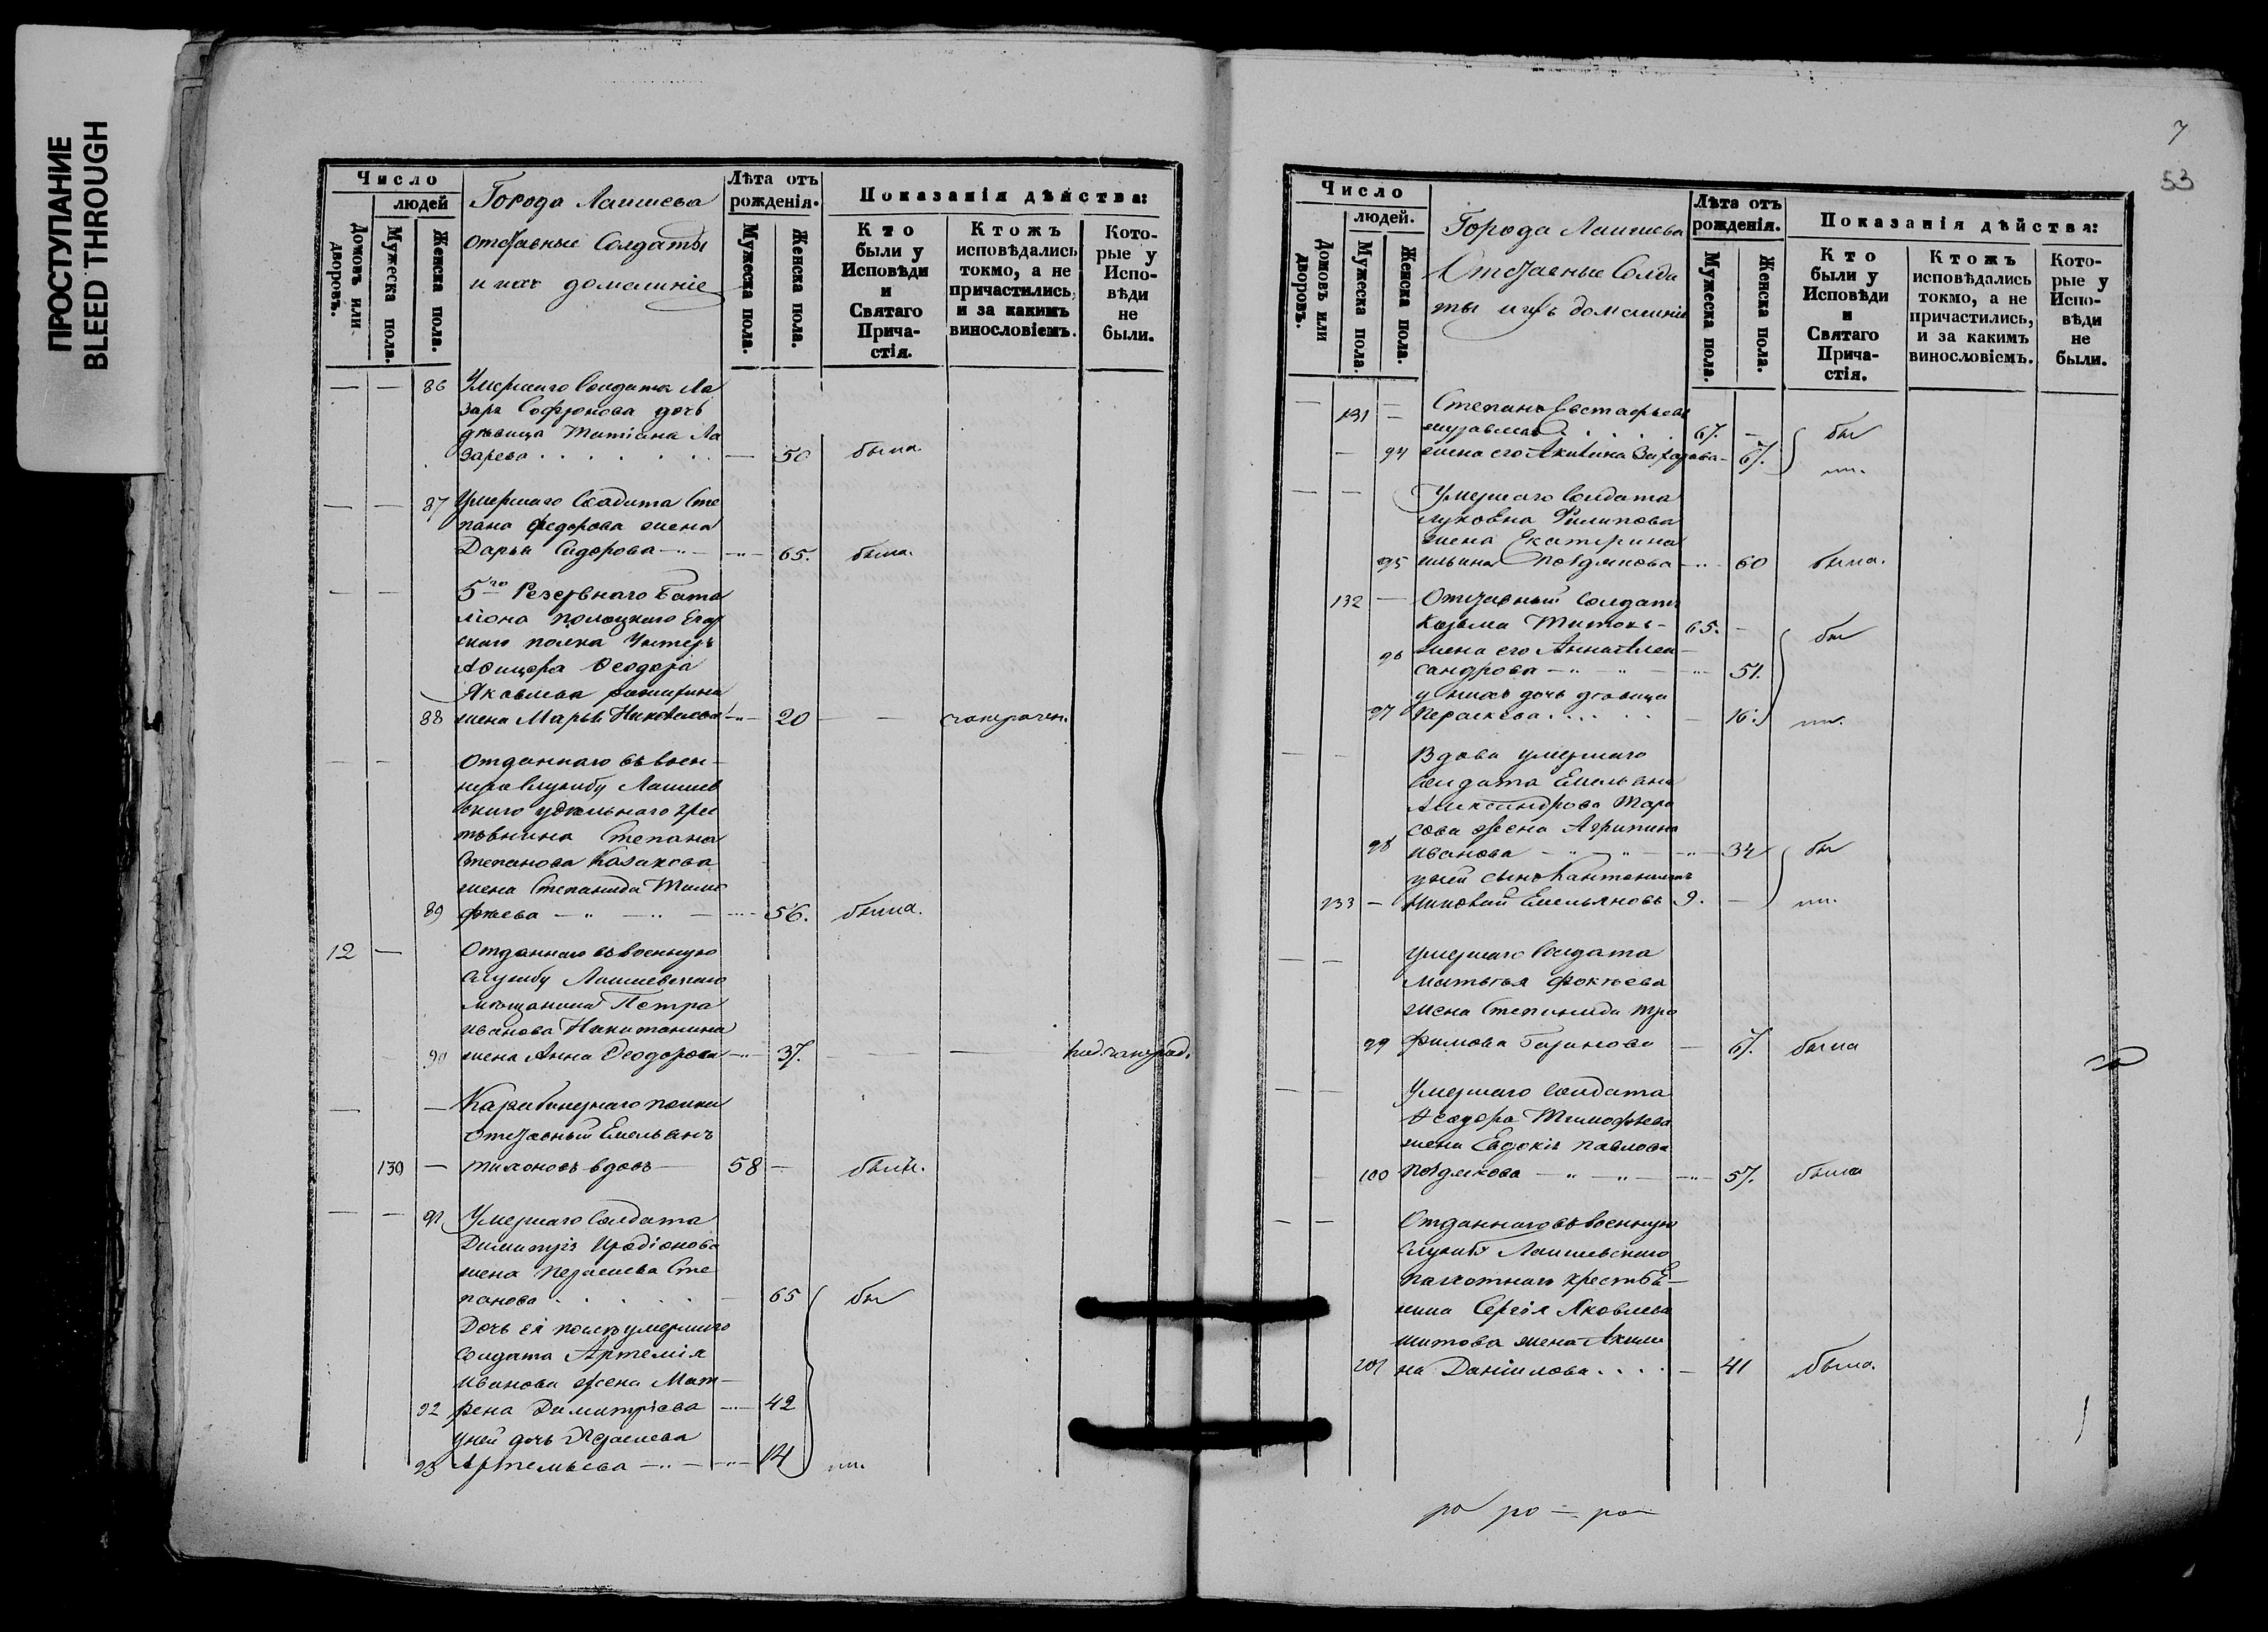 ПРОСТУПАНИЕ
BLEED THROUGH
Число
людей
Домовъ или дворовъ.
Мужеска пола.
Женска пола.
Города Лаишева
отставные Солдаты
и ихъ домашніе
Лѣта отъ рожденія.
Мужеска пола.
Женска пола.
Показанія дѣйства:
Кто были у Исповѣди и Святаго Прича-стія.
Ктожъ исповѣдались токмо, а не причастились, и за какимъ винословіемъ.
Кото-рые у Испо-вѣди не были.
— — 86 Умершаго Солдата Ла
заря Софронова дочь
дѣвица Татіана Ла
зарева . . . . . . . — 50 была.
— — 87 Умершаго Солдата Сте
пана Федорова жена
Дарья Сидорова — 65. была.
— — 5го Резервнаго Бата
ліона полоцкаго Егер
скаго полка Унтеръ
Афицера Ѳеодора
Яковлева
88 жена Марья — 20 — —
— — Отданнаго въ воен-
ную службу Лаишев
скаго удѣльнаго кре
Степана
Степанова Казакова
жена Степанида Тимо
89 фѣева — 56. была.
12 — Отданнаго въ военную
службу Лаишевскаго
мѣщанина Петра
Иванова Никитанина
90 жена Анна Ѳеодорова — 37. —
— — Карабинернаго полка
отставный Емельянъ
130 — Тихоновъ вдовъ — 58 — былъ.
— — 91 Умершаго Солдата
Димитрія Иродіонова
жена Парасковa Сте
панова . . . . . — 65 бы
Дочь ея умершаго
Солдата Артемія
Иванова жена Мат-
92 рена Димитріева — 42
у ней дочь
93 Артемьева — 14 ли.
7
53
Число
людей.
Домовъ или дворовъ.
Мужеска пола.
Женска пола.
Города Лаишева
Отставные Солда
ты и ихъ домашніе
Лѣта отъ рожденія.
Мужеска пола.
Женска пола.
Показанія дѣйства:
Кто были у Исповѣди и Святаго Прича-стія.
Ктожъ исповѣдались токмо, а не причастились, и за какимъ винословіемъ.
Кото-рые у Испо-вѣди не были.
— 131 — Степанъ Евстафьевъ
Журавлевъ . . . . 67. — бы
— 94 жена его Акилина Захарова — 67. ли.
— — Умершаго Солдата
Филипова
жена Екатерина
95 Ильина Позднякова — 60 была.
132 — Отставный Солдатъ
Козьма Титовъ — 65. — бы
96 жена его Анна Алек
сандрова — 51.
у нихъ дочь дѣвица
97 Параскева . . . . — 16. ли.
— — Вдова умершаго
Солдата Емельяна
Александрова Тара
сова жена Агрипина
98 Иванова — 34 бы
у ней сынъ Кантонистъ
133 — Емельяновъ 9. — ли.
— — умершаго Солдата
Матвѣя Фокѣева
жена Степанида Тро
99 фимова — 67. была
— — Умершаго Солдата
Ѳеодора Тимофѣева
жена Евдокія Павлова
100 Позднякова — 57. была
— — Отданнаго въ военную
службу Лаишевскаго
пахотнаго крестья-
нина Сергія Яковлева
Титова жена Акили
101 на Даніилова . . . . — 41 была.